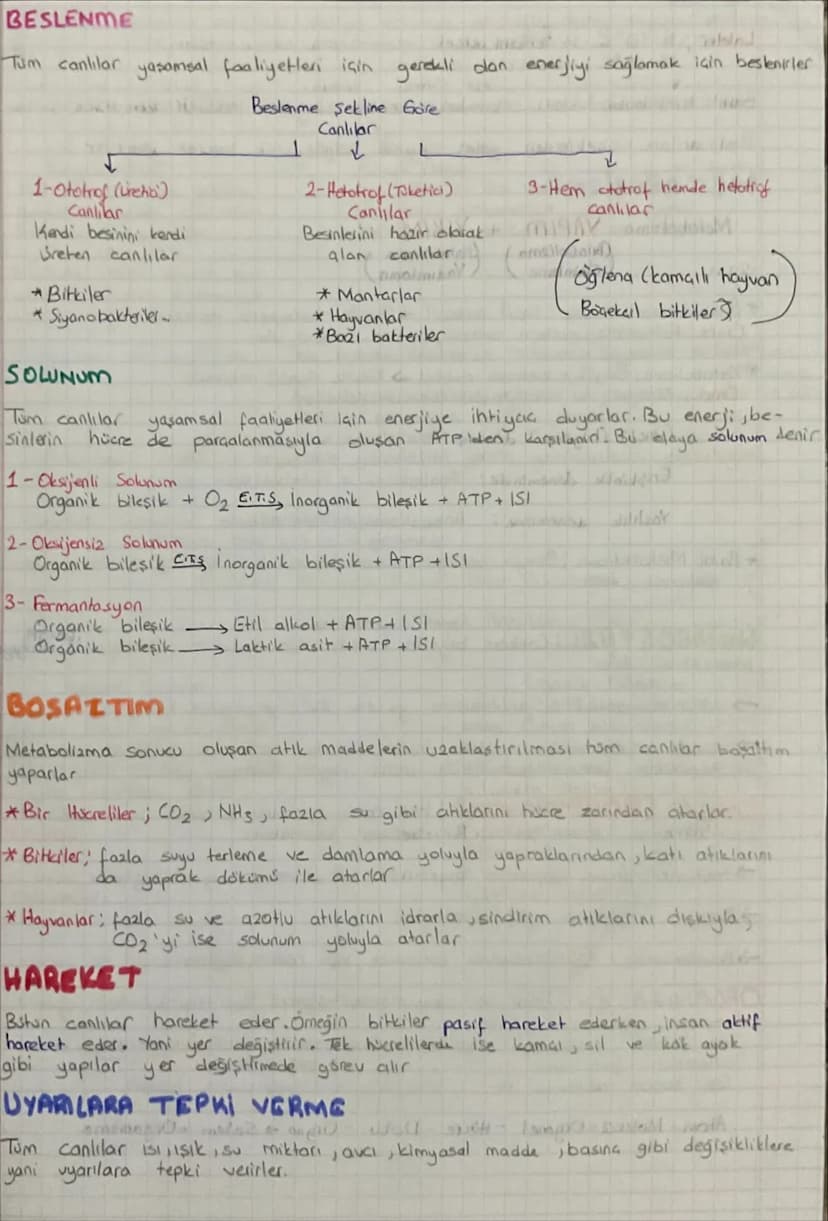 BESLENME
Tüm canlılar yaşamsal faaliyetleri için gerekli olan enerjiyi sağlamak için beslenirler
Beslenme Şekline Göre
Canlılar
1-Ototrof (Üretici) Canlılar
Kendi besinini kendi
üreten canlılar
* Bitkiler
* Siyanobakteriler..
2-Hetotrof (Tüketici)
Canlılar
Besinlerini hazır olarak
alan canlılar
* Mantarlar
* Hayvanlar
* Bazı bakteriler
3-Hem ototrof hemde hetotrof
canlılar
(Öğlena (kamçılı hayvan
Böcekcil bitkiler))
SOLUNUM
Tüm canlılar yaşamsal faaliyetleri için enerjiye ihtiyaç duyarlar. Bu enerji, be-
sinlerin hücre de parçalanmasıyla oluşan ATP'lden karşılanır. Bu olaya solunum denir
1-Oksijenli Solunum
Organik bileşik + O₂ E.T.S → İnorganik bileşik + ATP + ISI
2-Oksijensiz Solunum
Organik bileşik E.T.S → inorganik bileşik + ATP + ISI
3- Fermantasyon
Organik bileşik → Etil alkol + ATP + ISI
Organik bileşik → Laktik asit + ATP + ISI
BOŞALTIM
Metabolizma sonucu oluşan atık maddelerin uzaklaştırılması tüm canlılar boşaltım
yaparlar
* Bir Hücreliler ; CO₂ , NH₃ , fazla su gibi atıklarını hücre zarından atarlar.
* Bitkiler; fazla suyu terleme ve damlama yoluyla yapraklarından, katı atıklarını
da yaprak dökümü ile atarlar
* Hayvanlar; fazla su ve azotlu atıklarını idrarla, sindirim atıklarını dışkıyla,
CO₂'yi ise solunum yoluyla atarlar
HAREKET
Bütün canlılar hareket eder. Örneğin bitkiler pasif hareket ederken, insan aktif
hareket eder. Yani yer değiştirir. Tek hücrelilerde ise kamçı, sil ve kök ayak
gibi yapılar yer değiştirmede görev alır
UYARILARA TEPKİ VERME
Tüm canlılar ısı, ışık, su miktarı, avcı, kimyasal madde, basınç gibi değişikliklere
yani uyarılara tepki verirler.